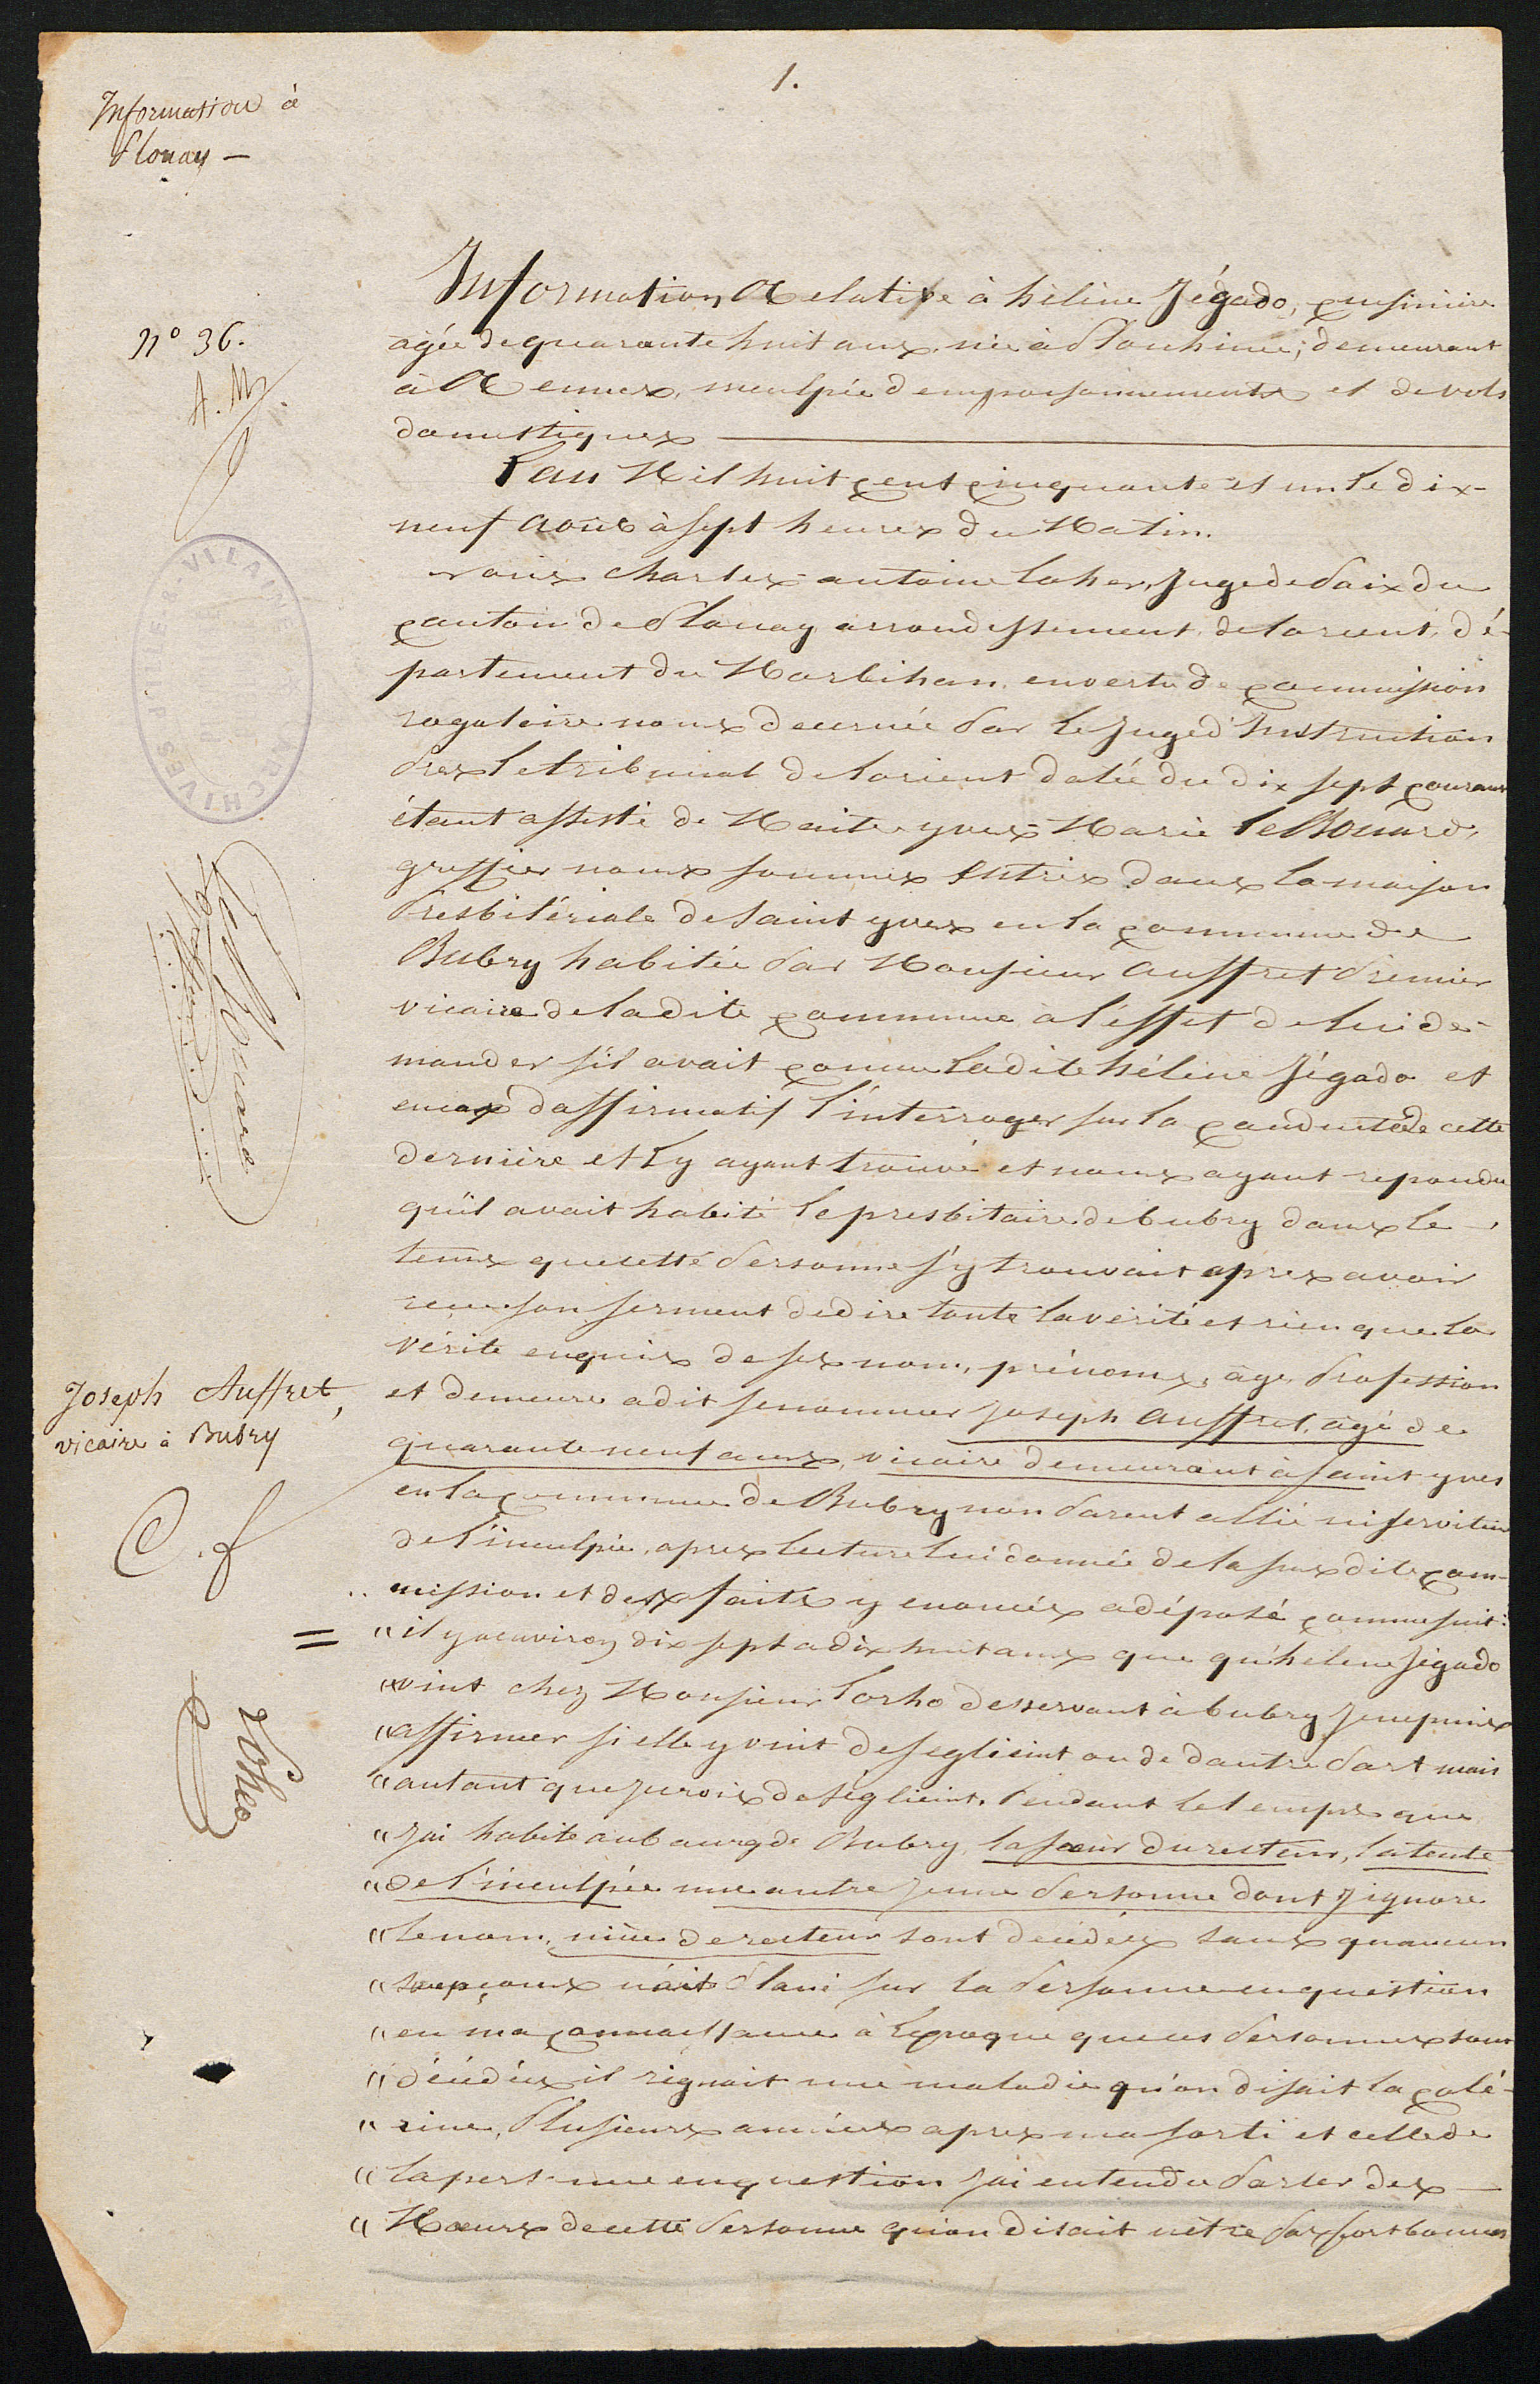 1.
Information à
Plouay —
Information Relative à hélène Jégado, cuisinière
agée de quarante huit ans, née à Plouhinec, demeurant
à Rennes, inculpée d'empoisonnements et de vols
domestiques
n° 36.
A. M
L'an Mil huit cent cinquante et un le dix-
neuf août à sept heures du Matin.
nous charles-antoine Loher, Juge de Paix du
canton de Plouay arrondissement de lorient, dé-
partement du Morbihan, en vertu de commission
rogatoire nous decernée Par le Juge d'Instruction
Prés le tribunal de lorient datée du dix sept courant
étant assisté de Maitre yves-Marie Le Bouard,
greffier nous sommes Entrés dans la maison
Presbitériale de saint yves en la commune de
Bubry habitée Par Monsieur Auffret Premier
vicaire de la dite commune a l'effet de lui de-
mander s'il avait connu ladite hélène Jégado et
encas d'affirmatif l'interroger sur la conduite de cette
dernière et l'y ayant trouvé et nous ayant repondu
qu'il avait habité le presbitaire de bubry dans le
tems que cette Personne s'y trouvait apres avoir
recu son serment de dire toute la vérité et rien que la
vérité enquis de ses nom, prénoms, age, Profession
et demeure a dit se nommer Joseph Auffret, agé de
quarante neuf ans, vicaire demeurant à saint yves
en la commune de Bubry non Parent allié ni serviteur
de l'inculpée, apres lecture lui donnée de la sus dite com-
mission et des faits y enoncés a déposé comme suit:
Joseph Auffret,
vicaire à Bubry
C. f
"il y a environ dix sept a dix huit ans que qu'helene Jégado
"vint chez Monsieur Lorho desservant à bubry je ne puis
"affirmer si elle y vint de seglieint ou de d'autre Part mais
"autant que je crois de séglieint. Pendant le temps que
"j'ai habité au bourg de Bubry, la sœur du recteur, la tente
"de l'inculpée une autre jeune Personne dont j'ignore
"le nom, nièce de recteur sont décédées sans qu'aucun
"soupçons n'ait Plané sur la Personne en question
"en ma connaissance à l'epoque que ces Personnes sont
"décédées il régnait une maladie qu'on disait la colé-
"rine, Plusieurs années apres ma sorti et celle de
"la personne en question j'ai entendu Parler des
"Mœurs de cette Personne qu'on disait n'être Pas fort bonnes
Le Bouard
greffier
Loher
ARCHIVES D'ILLE-&-VILAINE